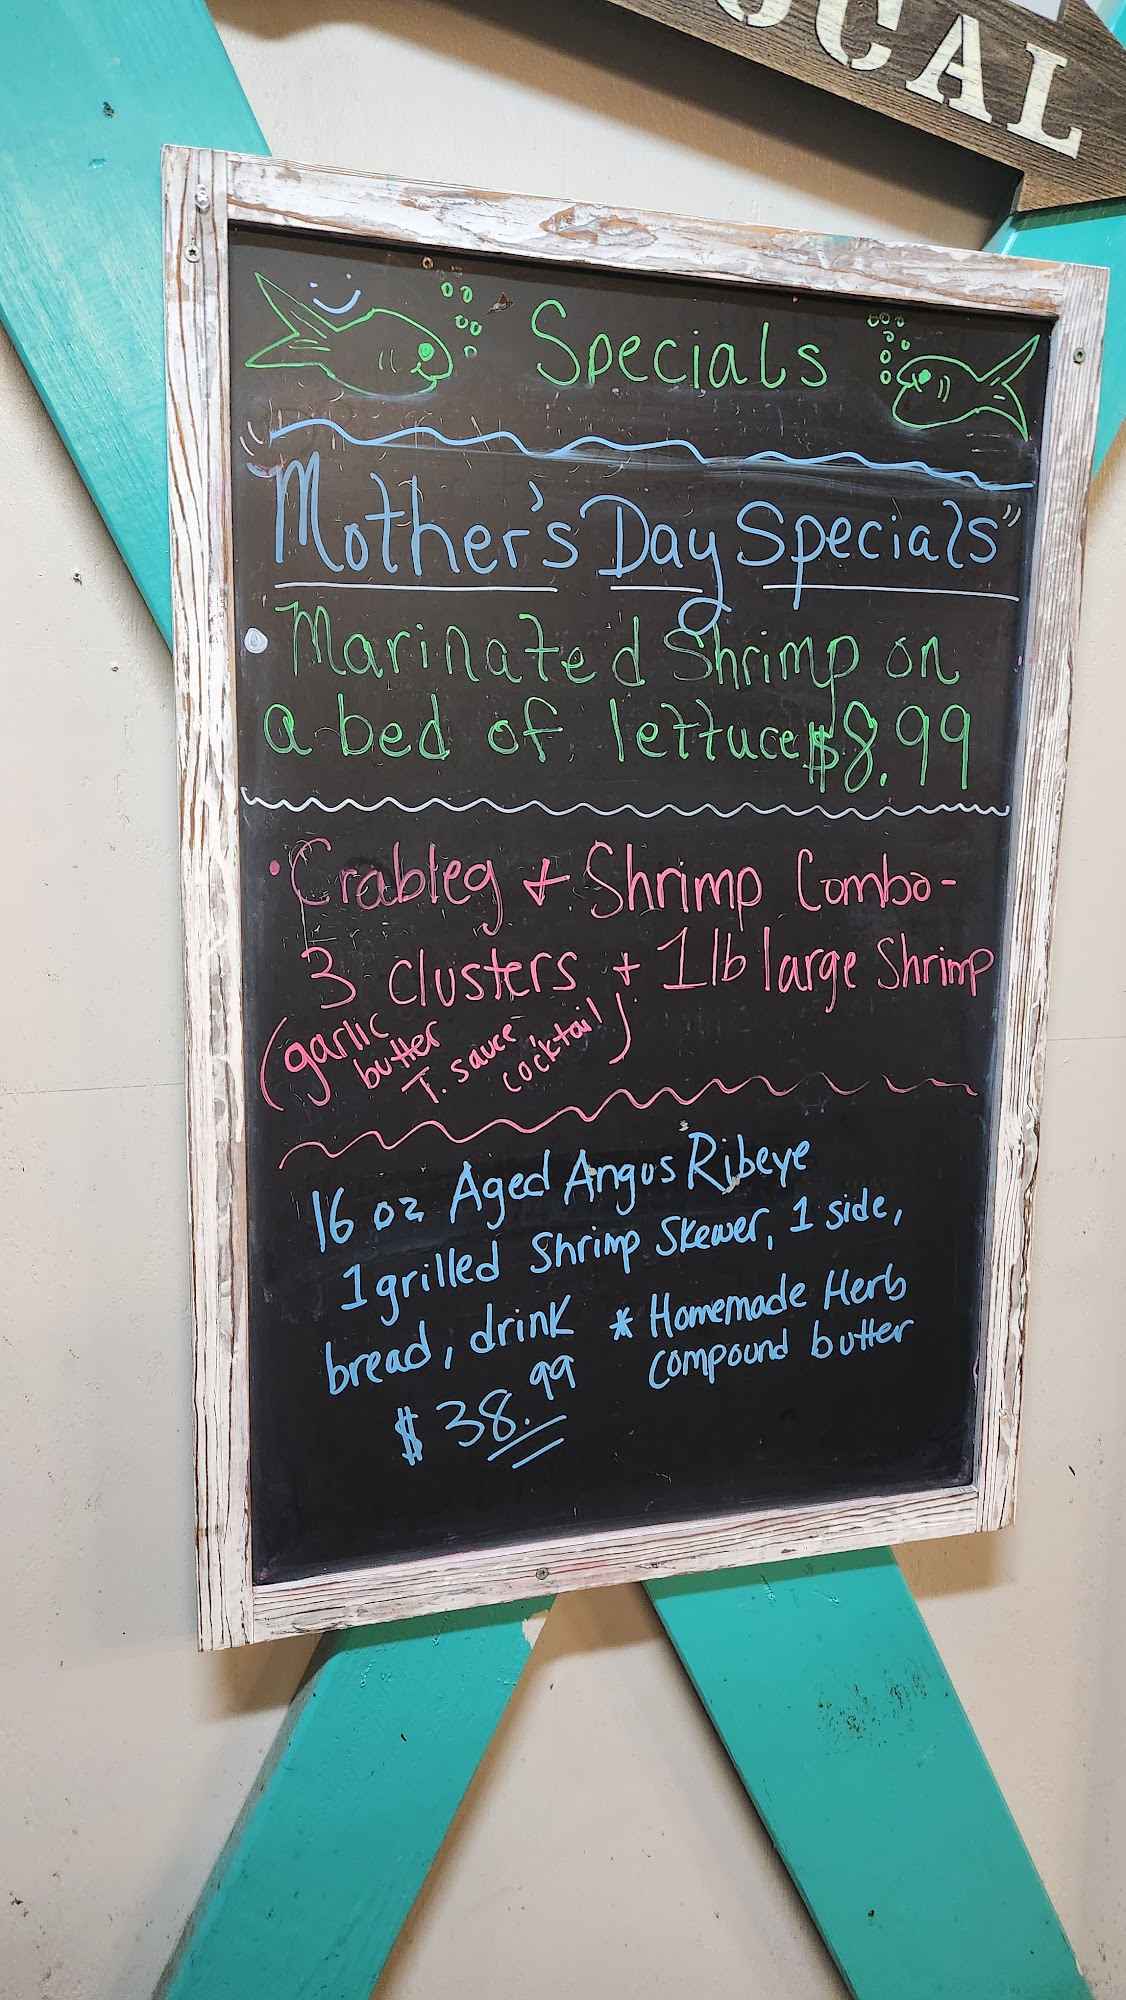 OCAL
Specials
"Mother's Day Specials"
Marinated Shrimp on
a bed of lettuce $8.99
Crableg + Shrimp Combo-
3 clusters + 1 lb large Shrimp
(garlic butter T. sauce cocktail)
16 oz Aged Angus Ribeye
1 grilled Shrimp Skewer, 1 side,
bread, drink * Homemade Herb
compound butter
$38.99